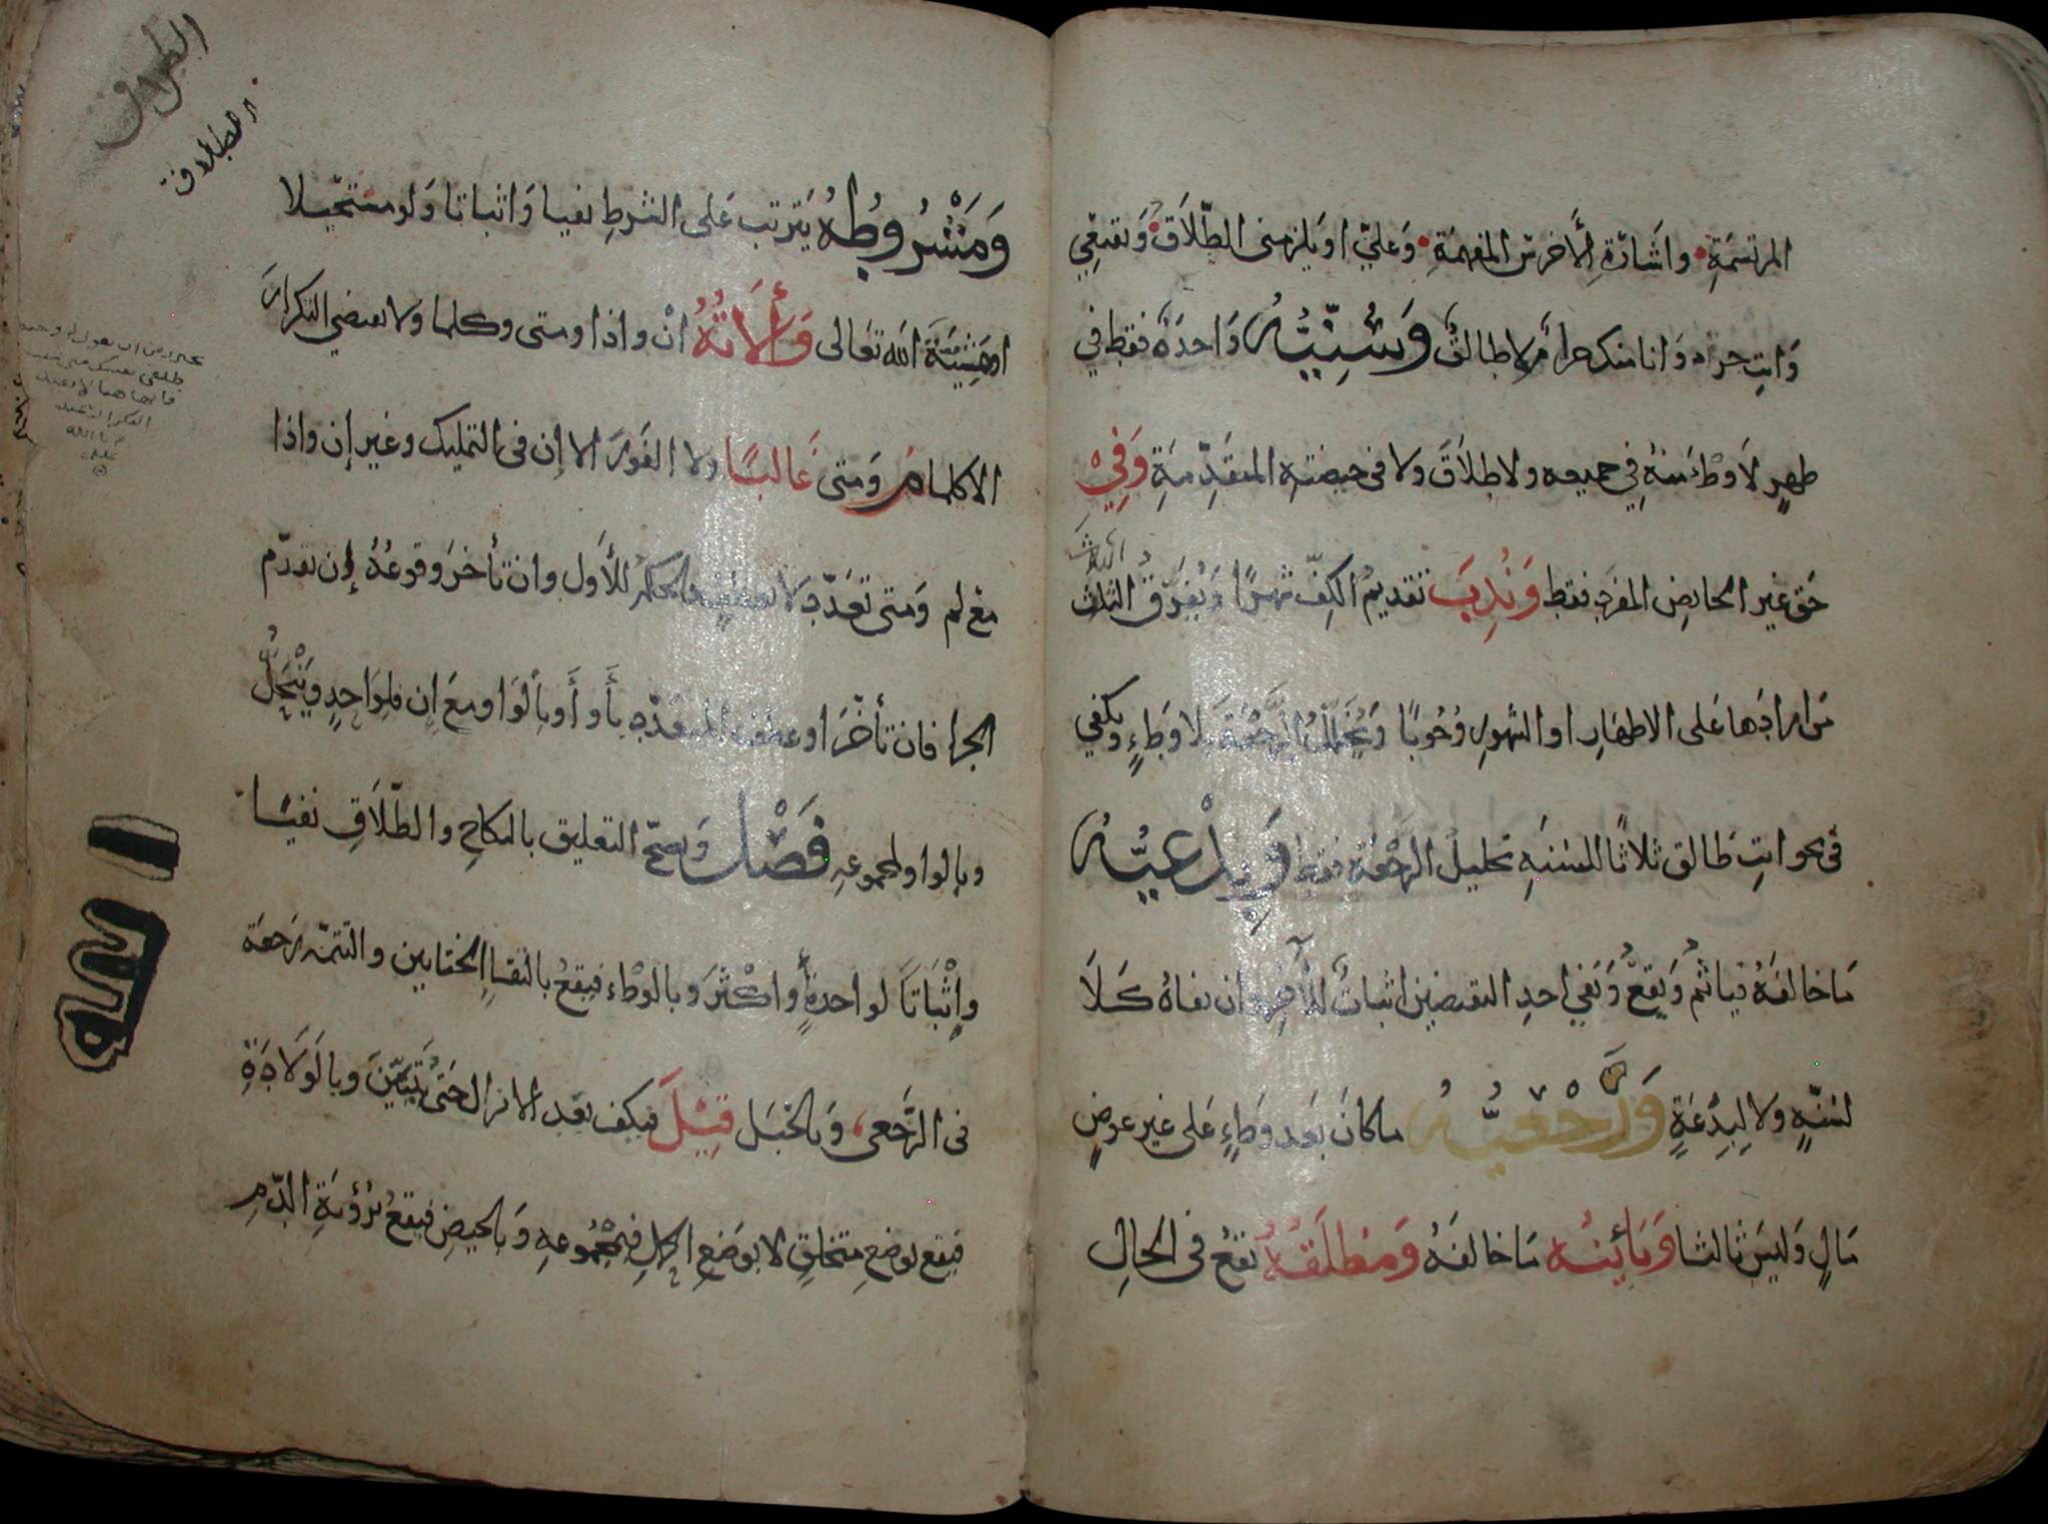 المرتسمة واشارة الأخرس المفهمة وعليّ او يلزمنى الطّلاق وتقنعي
وانتِ حرة وانا منكِ حرام لا طالق وسُنّيّه واحدة فقط في
طهرٍ لا وطءَ منه في جميعه ولا طلاق ولا فى حيضته المتقدّمةِ وفي
حق غير الحايض المفرد فقط وندب تقديم الكفّ شهرًا ويفرّق الثلث
الثلاث
من ارادها على الاطهار او الشهور وجوبًا ويخلل الرجعة بلا وطءٍ ويكفي
فى نحو انتِ طالق ثلاثًا للسنه تخليل الرجعة فقط وبدعيّه
ما خالفه فيأثم ويقع ونفي احد النقيضين اثباتٌ للآخر وان نفاه كـلا
لسنّةٍ ولا لبدعةٍ ورجعيّه ما كان بعد وطءٍ على غير عوض
مالٍ وليس ثالثا وبائنه ما خالفه ومطلقه يقع فى الحال
الطلاق
ومشروطه يترتب على الشرط نفيا واثباتا ولو مستحيلا
او مشيئة الله تعالى وألاته ان واذا ومتى وكلما ولا يقتضي التكرار
الا كلما ومتى غالبًا ولا الفور الا إن فى التمليك وغير إن واذا
مع لم ومتى تعدّد لا بعطفٍ فالحكم للأول وان تأخر وقوعه إن تقدّم
الجزا فان تأخر او عطف المتعدّد بأو او بالواو مع ان فلواحدٍ وينحل
وبالواو لمجموعه فَصْل ويصحّ التعليق بالنكاح والطّلاق نفيًا
وإثباتًا لواحدةٍ او اكثر وبالوطء فيقع بالتقاا الختانين والتتمه رجعة
فى الرّجعى وبالحبل قيل فيكف بعد الانزال حتى يتبيّن وبالولادةِ
فيقع بوضع متخلقٍ لا بوضع الحمل فمجموعه وبالحيض فيقع برؤية الدّم